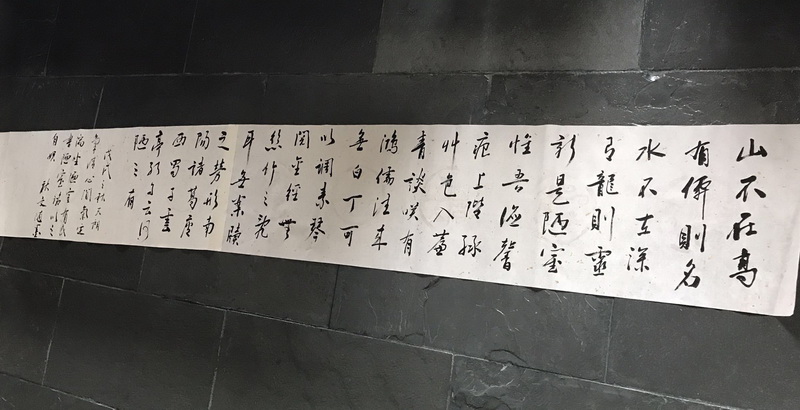 山不在高
有僊則名
水不在深
有龍則靈
斯是陋室
惟吾德馨
痕上階綠
艸色入簾
青談咲有
鴻儒往來
無白丁可
以調素琴
閱金經無
絲竹之亂
耳無案牘
之勞形南
陽諸葛廬
西蜀子雲
亭孔子云何
陋之有
戊戌之秋